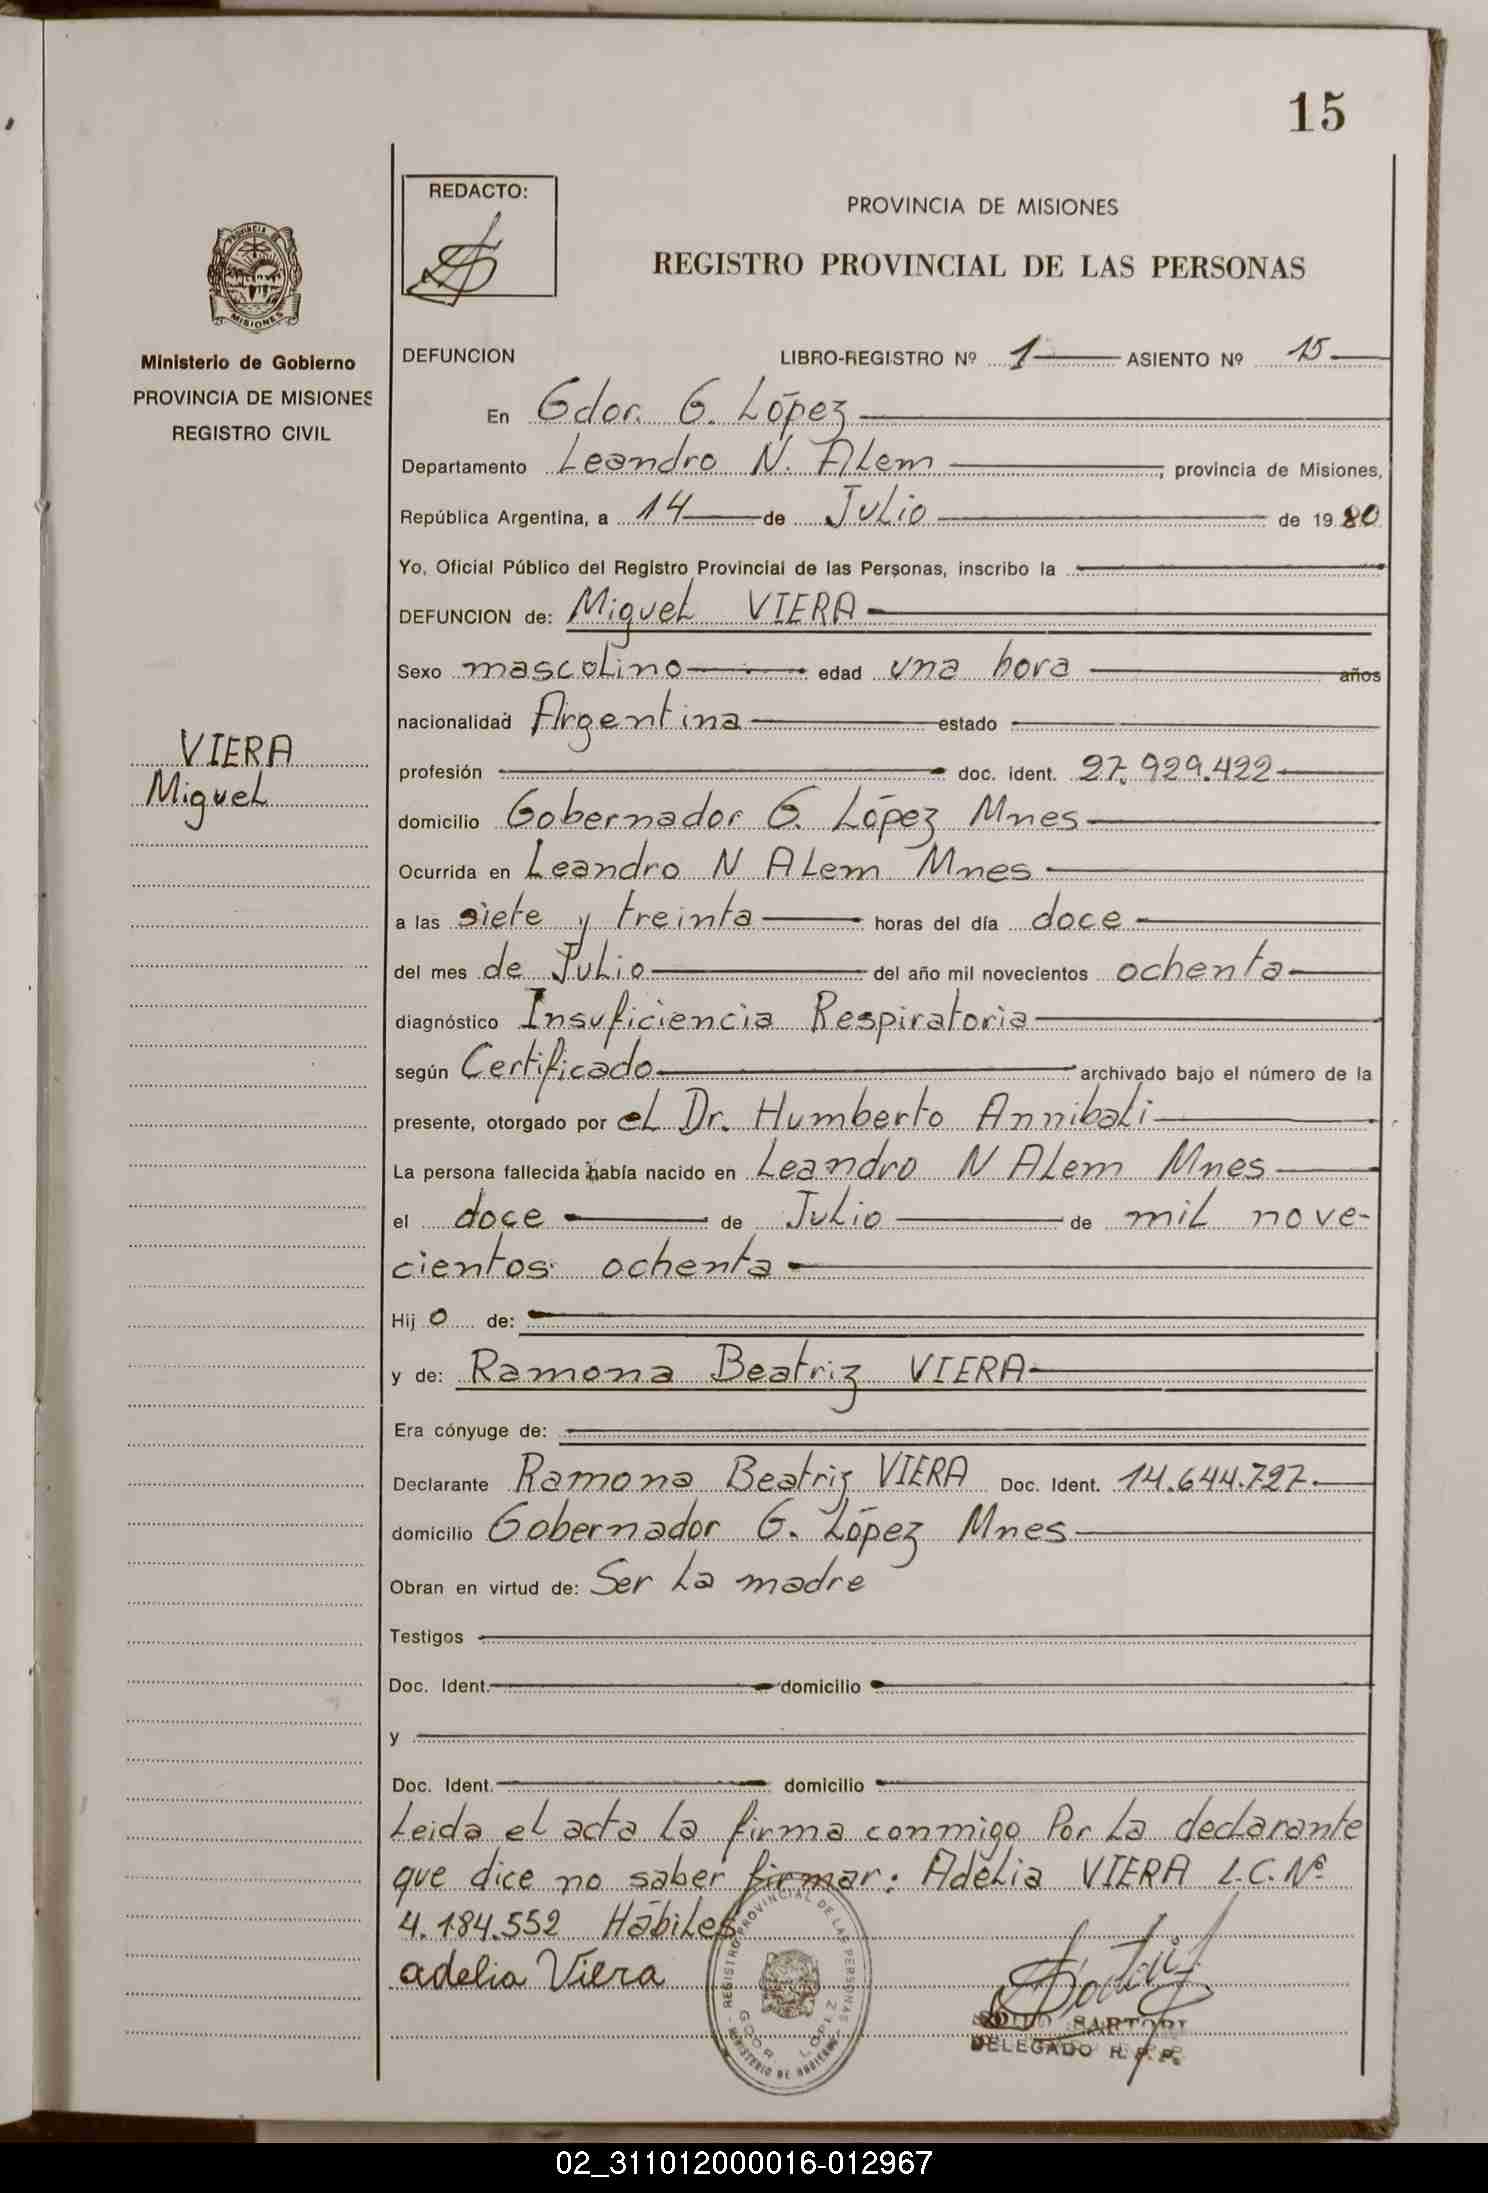 15
REDACTO:
PROVINCIA DE MISIONES
REGISTRO PROVINCIAL DE LAS PERSONAS
PROVINCIA DE
MISIONES
Ministerio de Gobierno
PROVINCIA DE MISIONES
REGISTRO CIVIL
VIERA
Miguel
DEFUNCION LIBRO-REGISTRO Nº 1 ASIENTO Nº 15
En Gdor. G. López
Departamento Leandro N. Alem, provincia de Misiones,
República Argentina, a 14 de Julio de 1980
Yo, Oficial Público del Registro Provincial de las Personas, inscribo la
DEFUNCION de: Miguel VIERA
Sexo mascolino edad una hora años
nacionalidad Argentina estado
profesión doc. ident. 27.929.422
domicilio Gobernador G. López Mnes
Ocurrida en Leandro N Alem Mnes
a las siete y treinta horas del día doce
del mes de Julio del año mil novecientos ochenta
diagnóstico Insuficiencia Respiratoria
según Certificado archivado bajo el número de la
presente, otorgado por el Dr. Humberto Annibali
La persona fallecida había nacido en Leandro N Alem Mnes
el doce de Julio de mil nove-
cientos ochenta
Hij o de:
y de: Ramona Beatriz VIERA
Era cónyuge de:
Declarante Ramona Beatriz VIERA Doc. Ident. 14.644.727
domicilio Gobernador G. López Mnes
Obran en virtud de: Ser la madre
Testigos
Doc. Ident. domicilio
y
Doc. Ident. domicilio
Leida el acta la firma conmigo Por la declarante
que dice no saber firmar: Adelia VIERA L.C. Nº
4.184.552 Hábiles
adelia Viera
REGISTRO PROVINCIAL DE LAS PERSONAS
GDOR. LOPEZ
SARTORI
DELEGADO R.P.P.
02_311012000016-012967